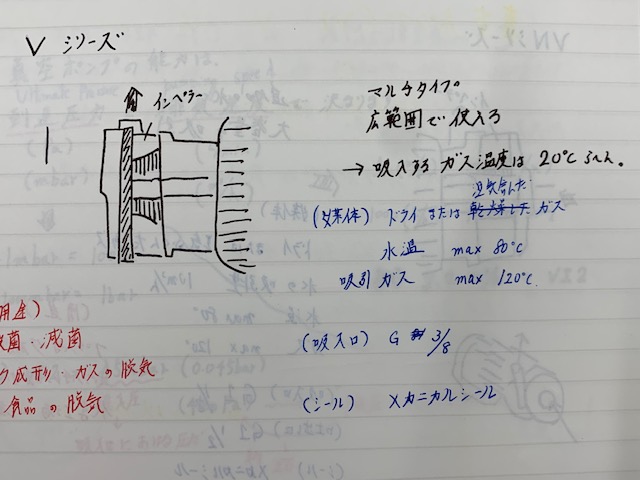 V シリーズ
インペラー
マルチタイプ
広範囲で使える
→ 吸入するガス温度は 20℃ くらい。
湿気含んだ
(媒体) ドライ または 乾燥した ガス
水温 max 80℃
吸引ガス max 120℃
用途)
菌・滅菌
成形・ガスの脱気
食品の脱気
(吸入口) G 3/8
(シール) メカニカルシール